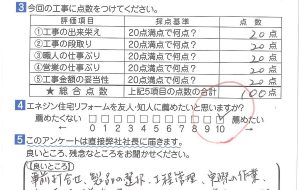 3 今回の工事に点数をつけてください。
評価項目 採点基準 点数
①工事の出来栄え 20点満点で何点? 20点
②工事の段取り 20点満点で何点? 20点
③職人の仕事ぶり 20点満点で何点? 20点
④営業の仕事ぶり 20点満点で何点? 20点
⑤工事金額の妥当性 20点満点で何点? 20点
★総合点数 上記5項目の点数の合計 100点
4 エネジン住宅リフォームを友人・知人に薦めたいと思いますか?
薦めたくない 薦めたい
0 1 2 3 4 5 6 7 8 9 10
5 このアンケートは直接弊社社長に届きます。
良いところ、残念なところをお聞かせください。
【良いところ】
事前打合せ、製品の選択、工程管理、実際の作業、